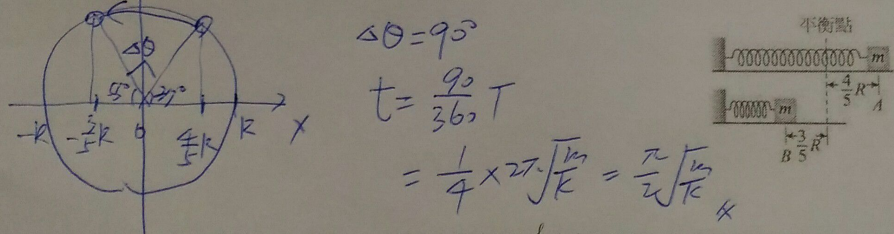 Δθ
53° 37°
-R -3/5R 0 4/5R R X
Δθ=90°
t= 90/360 T
= 1/4 ×2π√m/k = π/2 √m/k
平衡點
m
4/5 R A
m
B 3/5 R